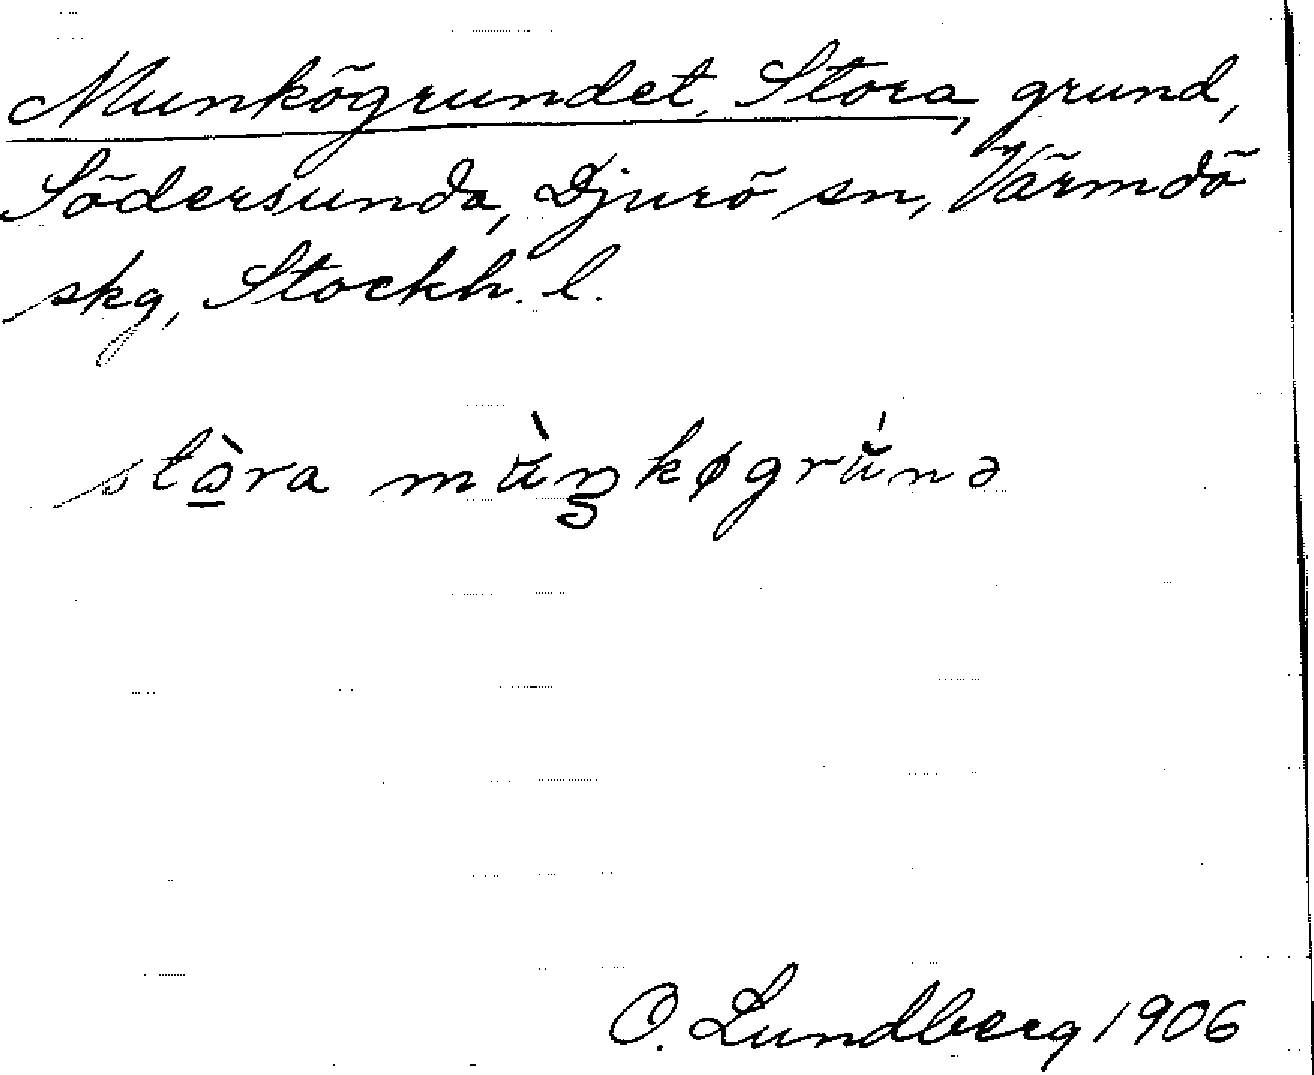 Munkögrundet, Stora, grund,
Södersunda, Djurö sn, Värmdö
skg, Stockh. l.
stòra mùŋkøgrúnə
O. Lundberg 1906